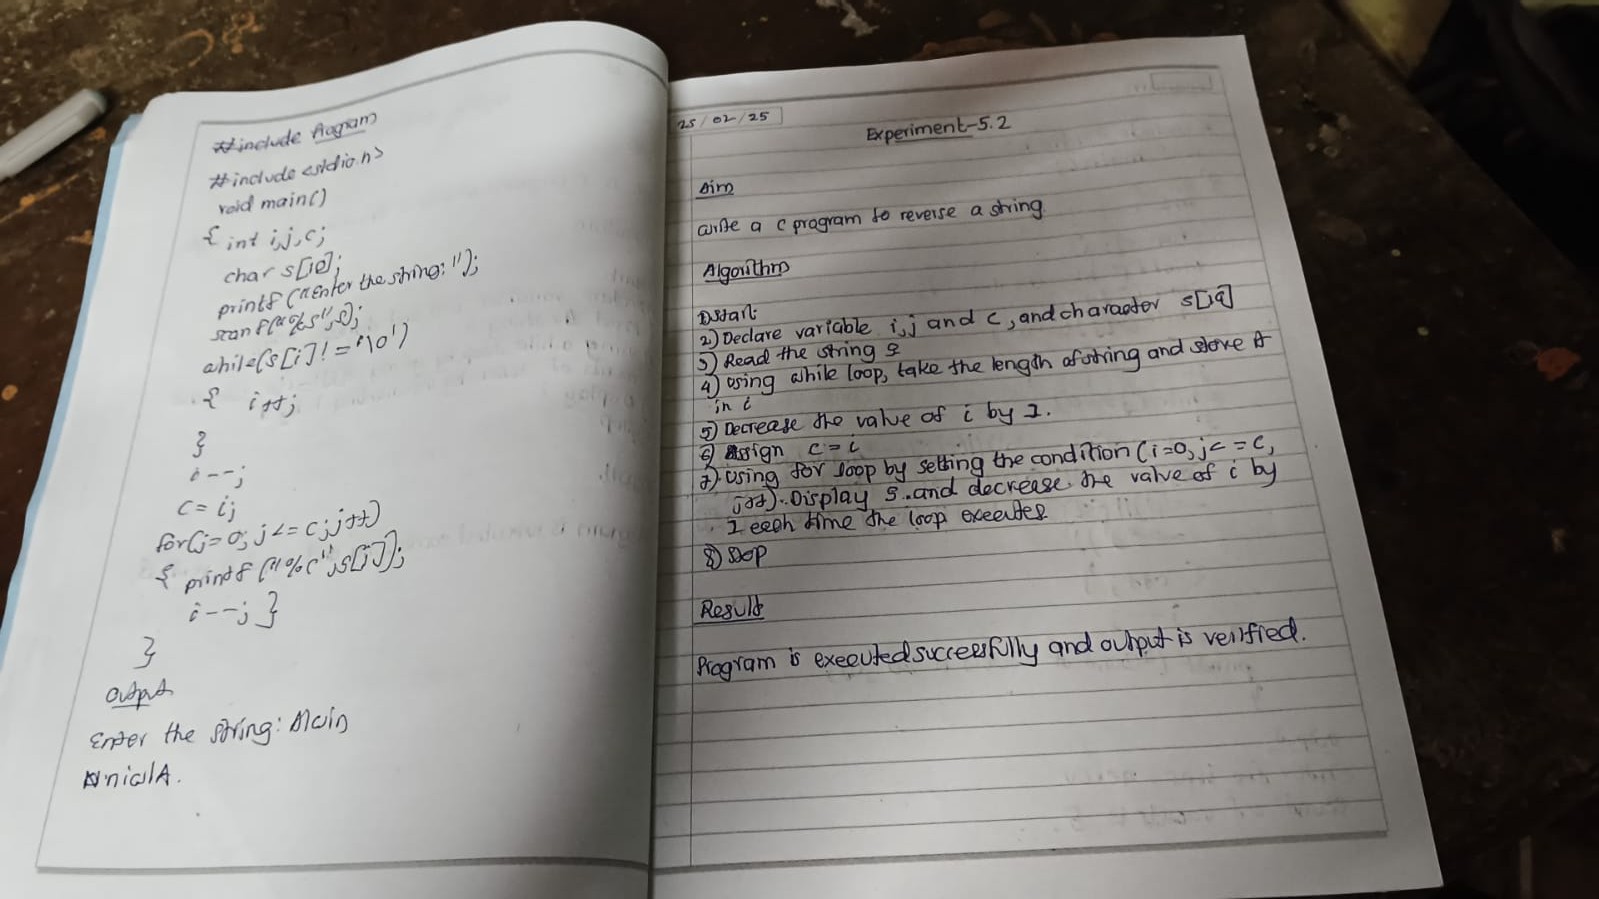 #include Program
#include <stdio.h>
void main()
{ int i,j,c;
char s[10];
printf ("Enter the string: ");
scanf("%s",s);
while(s[i]!='\0')
{ i++;
}
i--;
c=i;
for(j=0; j<=c; j++)
{ printf ("%c",s[i]);
i--; }
}
output
Enter the string: Alwin
niwlA.
25/02/25
Experiment-5.2
Aim
write a c program to reverse a string
Algorithm
1) Start:
2) Declare variable i,j and c, and character s[10]
3) Read the string s
4) using while loop, take the length of string and store it
in i
5) Decrease the value of i by 1.
6) Assign c=i
7) Using for loop by setting the condition (i=0, j<=c,
j++). Display s..and decrease the value of i by
1 each time the loop executes
8) Stop
Result
Program is executed successfully and output is verified.